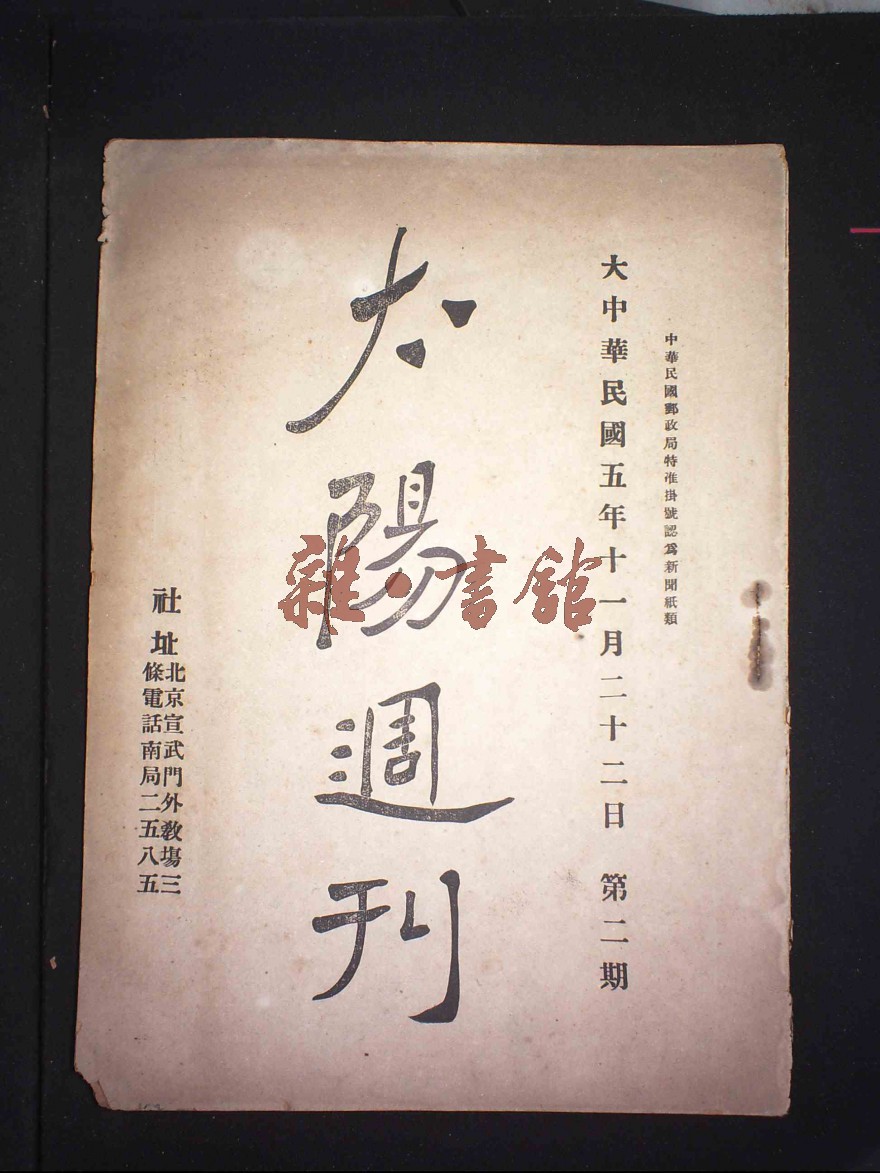 中華民國郵政局特准掛號認爲新聞紙類
大中華民國五年十一月二十二日 第二期
太陽週刊
雜·書館
社址
北京宣武門外教塲三
條電話南局二五八五